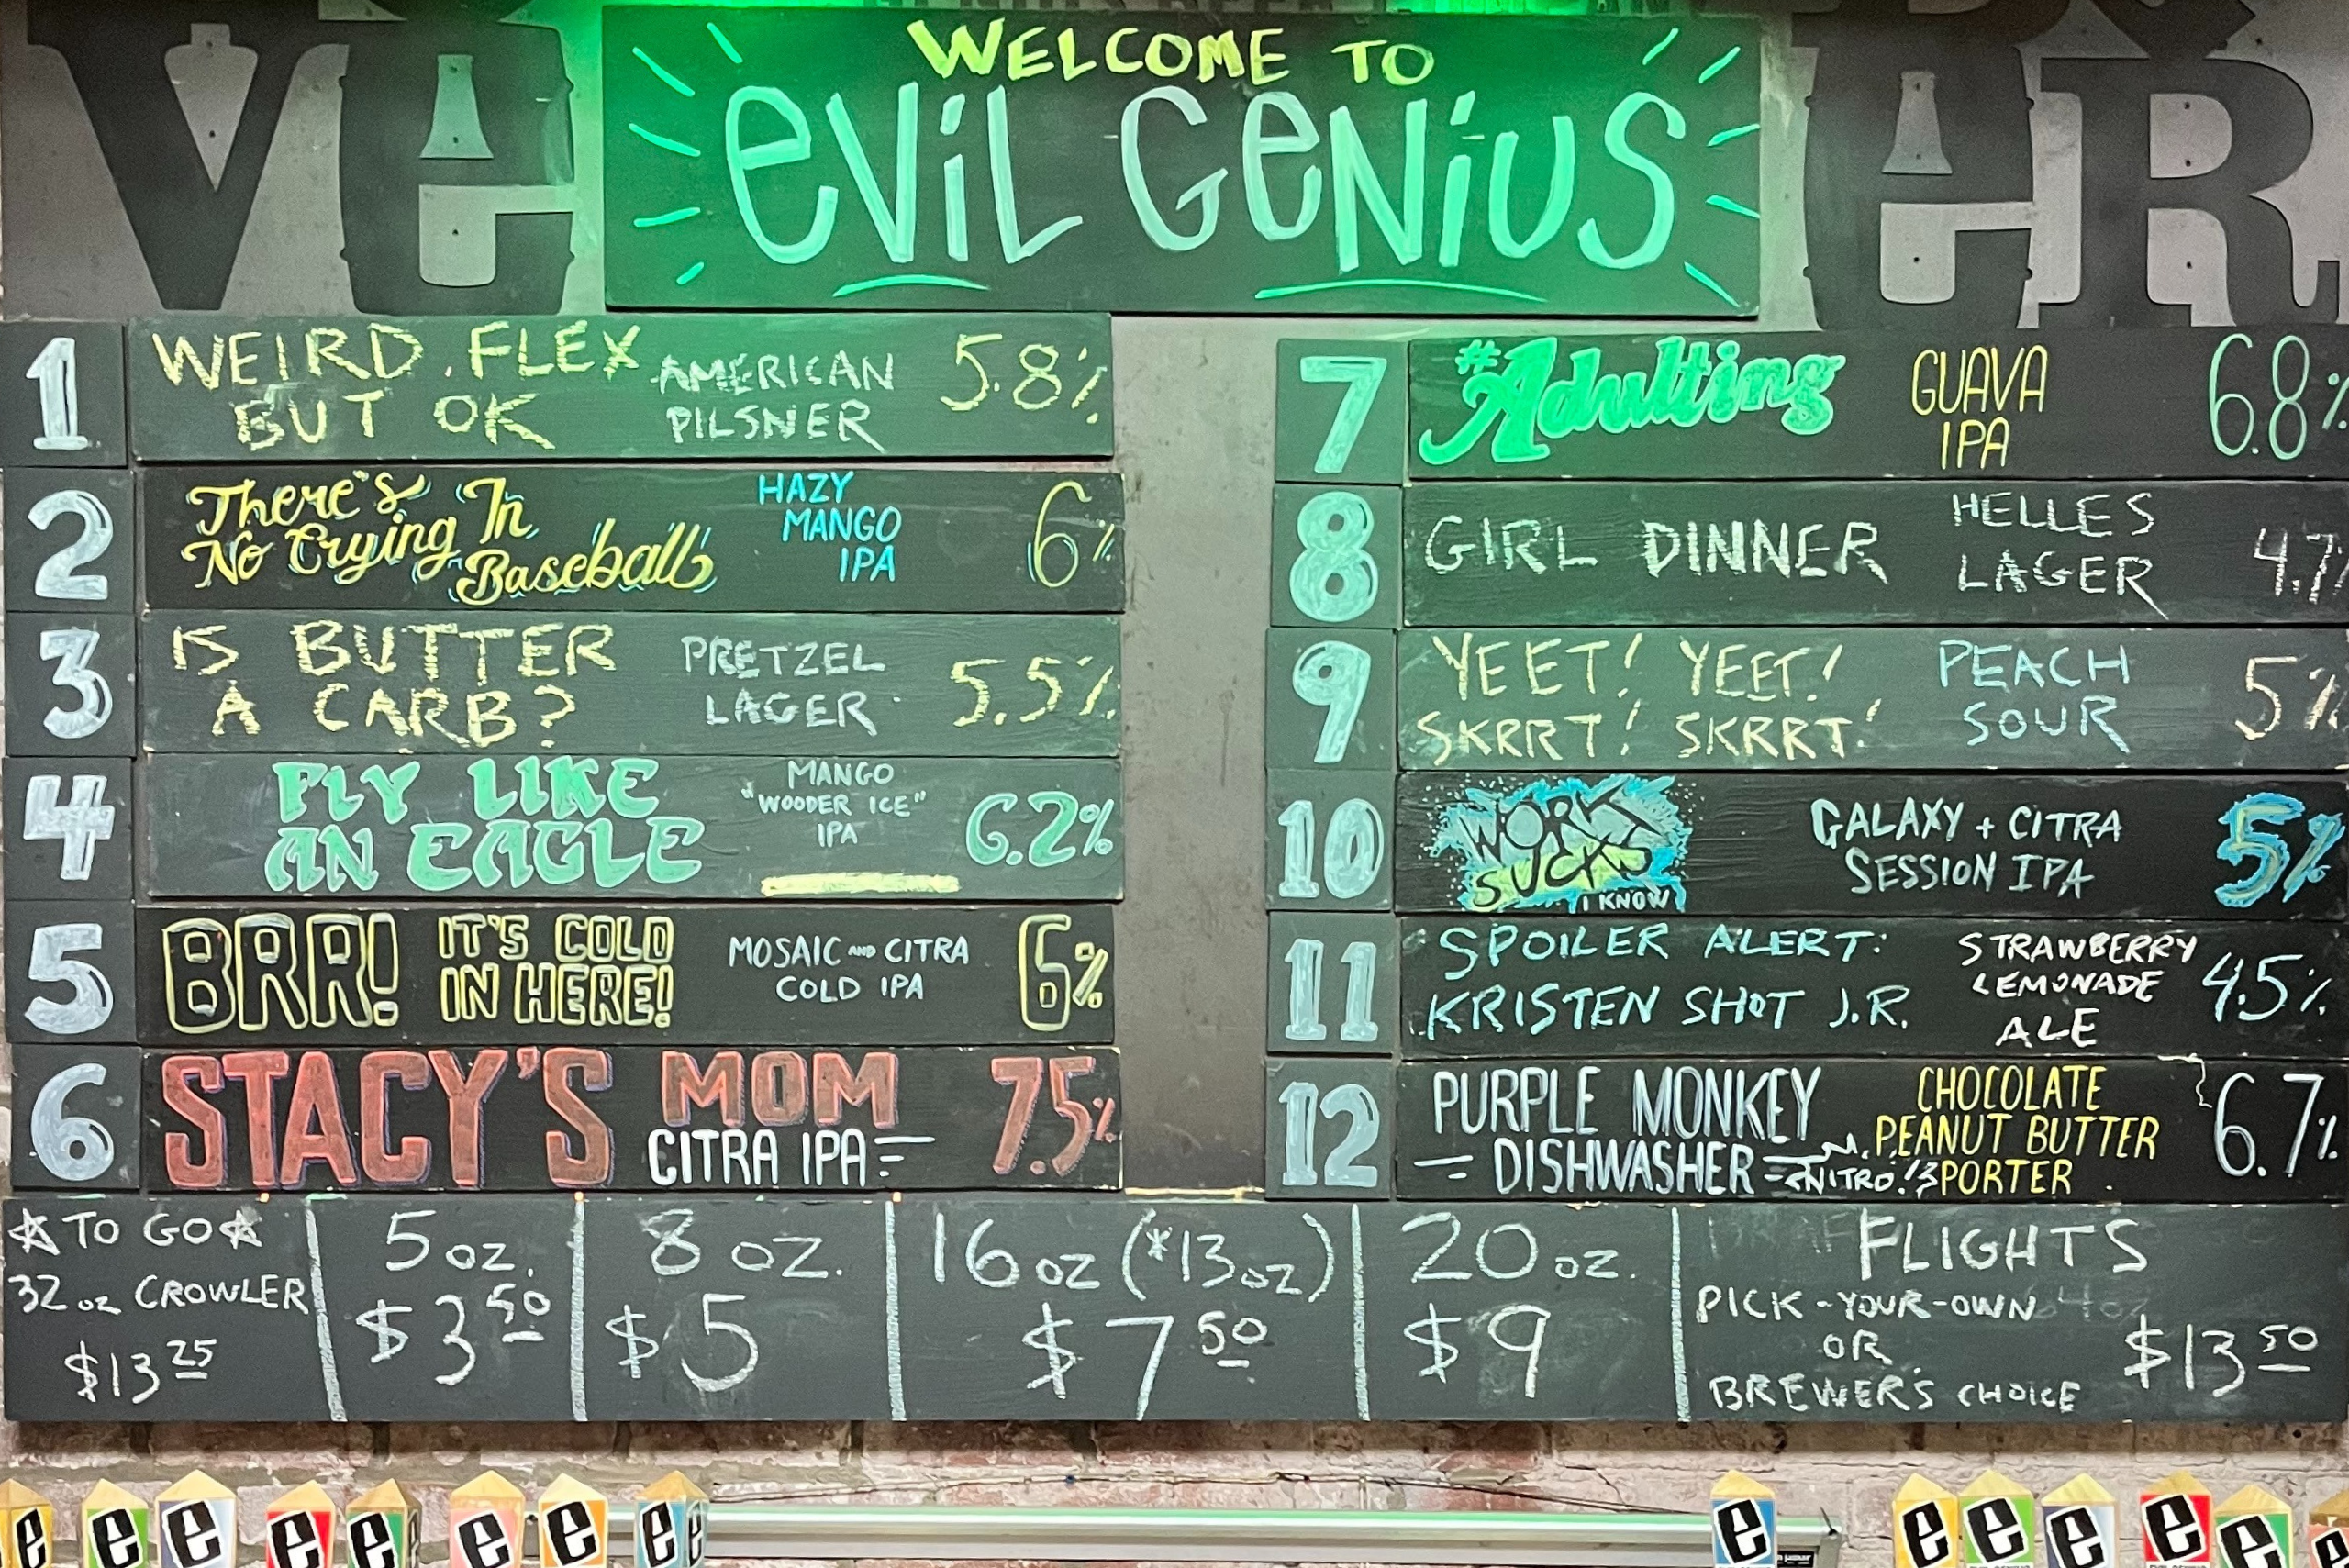 WELCOME TO
eViL GeNiUS
Ve
eR
1
WEIRD FLEX
BUT OK
AMERICAN
PILSNER
5.8%
2
There's
No Crying In
Baseball
HAZY
MANGO
IPA
6%
3
IS BUTTER
A CARB?
PRETZEL
LAGER
5.5%
4
FLY LIKE
AN EAGLE
MANGO
"WOODER ICE"
IPA
6.2%
5
BRR! IT'S COLD
IN HERE!
MOSAIC AND CITRA
COLD IPA
6%
6
STACY'S MOM
CITRA IPA
7.5%
7
#Adulting
GUAVA
IPA
6.8%
8
GIRL DINNER
HELLES
LAGER
4.7%
9
YEET! YEET!
SKRRT! SKRRT!
PEACH
SOUR
5%
10
WORK
SUCKS
I KNOW
GALAXY + CITRA
SESSION IPA
5%
11
SPOILER ALERT:
KRISTEN SHOT J.R.
STRAWBERRY
LEMONADE
ALE
4.5%
12
PURPLE MONKEY
DISHWASHER
NITRO!
CHOCOLATE
PEANUT BUTTER
PORTER
6.7%
TO GO
32 oz CROWLER
$13 25
5 oz.
$3 50
8 oz.
$5
16 oz (*13 oz)
$7 50
20 oz.
$9
FLIGHTS
PICK-YOUR-OWN
OR
BREWER'S CHOICE
$13 50
e
e
e
e
e
e
e
e
e
e
e
e
e
e